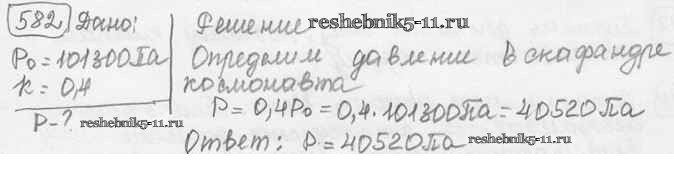 582 Дано:
P₀ = 101300 Па
k = 0,4
P - ?
reshebnik5-11.ru
Решение
reshebnik5-11.ru
Определим давление в скафандре
космонавта
P = 0,4P₀ = 0,4 · 101300 Па = 40520 Па
Ответ: P = 40520 Па
reshebnik5-11.ru